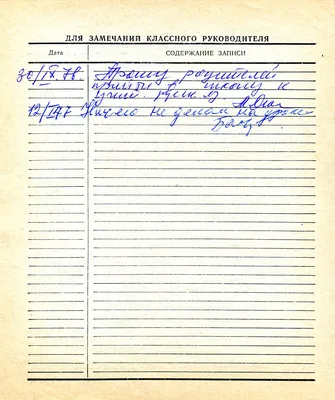 ДЛЯ ЗАМЕЧАНИЙ КЛАССНОГО РУКОВОДИТЕЛЯ
Дата СОДЕРЖАНИЕ ЗАПИСИ
30/IX.78. Прошу родителей
прийти в школу к
учит. русск яз
Ничего не делал на уроке